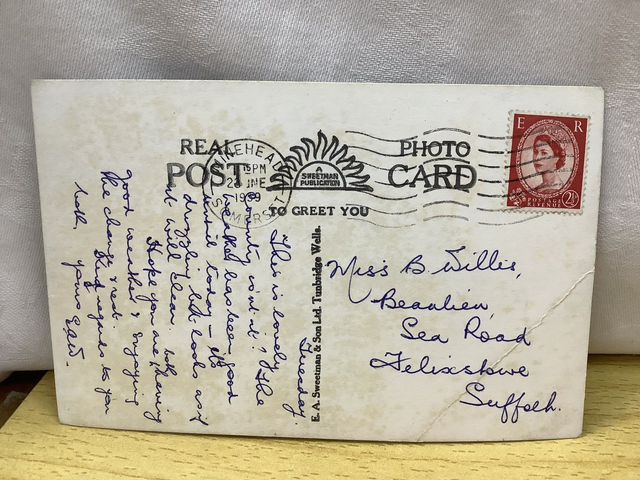 REAL PHOTO
POST CARD
A
SWEETMAN
PUBLICATION
TO GREET YOU
MINEHEAD
15PM
JNE
SOMERSET
E R
POSTAGE
REVENUE
2½
E. A. Sweetman & Son Ltd. Tunbridge Wells.
Tuesday.
This is lovely
country isn't it? The
weather has been good
until today – it's
drizzling but looks as if
it will clear.
Hope you are both having
good weather & enjoying
the change & rest.
Kind regards to you
both, yours
Miss B. Willis,
Beaulieu,
Sea Road
Felixstowe
Suffolk.